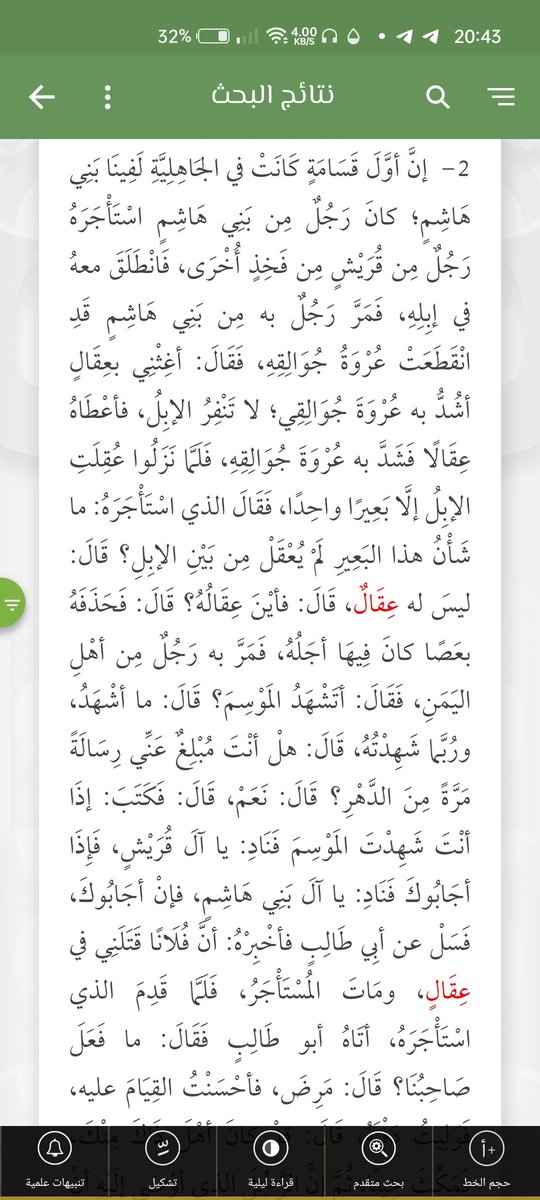 32% 4.00 KB/S 20:43
نتائج البحث
2- إنَّ أوَّلَ قَسَامَةٍ كَانَتْ في الجَاهِلِيَّةِ لَفِينَا بَنِي
هَاشِمٍ؛ كانَ رَجُلٌ مِن بَنِي هَاشِمٍ اسْتَأْجَرَهُ
رَجُلٌ مِن قُرَيْشٍ مِن فَخِذٍ أُخْرَى، فَانْطَلَقَ معهُ
في إبِلِهِ، فَمَرَّ رَجُلٌ به مِن بَنِي هَاشِمٍ قَدِ
انْقَطَعَتْ عُرْوَةُ جُوَالِقِهِ، فَقَالَ: أغِثْنِي بعِقَالٍ
أشُدُّ به عُرْوَةَ جُوَالِقِي؛ لا تَنْفِرُ الإبِلُ، فأعْطَاهُ
عِقَالًا فَشَدَّ به عُرْوَةَ جُوَالِقِهِ، فَلَمَّا نَزَلُوا عُقِلَتِ
الإبِلُ إلَّا بَعِيرًا واحِدًا، فَقَالَ الذي اسْتَأْجَرَهُ: ما
شَأْنُ هذا البَعِيرِ لَمْ يُعْقَلْ مِن بَيْنِ الإبِلِ؟ قَالَ:
ليسَ له عِقَالٌ، قَالَ: فأيْنَ عِقَالُهُ؟ قَالَ: فَحَذَفَهُ
بعَصًا كانَ فِيهَا أجَلُهُ، فَمَرَّ به رَجُلٌ مِن أهْلِ
اليَمَنِ، فَقَالَ: أتَشْهَدُ المَوْسِمَ؟ قَالَ: ما أشْهَدُ،
ورُبَّما شَهِدْتُهُ، قَالَ: هلْ أنْتَ مُبْلِغٌ عَنِّي رِسَالَةً
مَرَّةً مِنَ الدَّهْرِ؟ قَالَ: نَعَمْ، قَالَ: فَكَتَبَ: إذَا
أنْتَ شَهِدْتَ المَوْسِمَ فَنَادِ: يا آلَ قُرَيْشٍ، فَإِذَا
أجَابُوكَ فَنَادِ: يا آلَ بَنِي هَاشِمٍ، فإنْ أجَابُوكَ،
فَسَلْ عن أبِي طَالِبٍ فأخْبِرْهُ: أنَّ فُلَانًا قَتَلَنِي في
عِقَالٍ، ومَاتَ المُسْتَأْجَرُ، فَلَمَّا قَدِمَ الذي
اسْتَأْجَرَهُ، أتَاهُ أبو طَالِبٍ فَقَالَ: ما فَعَلَ
صَاحِبُنَا؟ قَالَ: مَرِضَ، فأحْسَنْتُ القِيَامَ عليه،
حجم الخط بحث متقدم قراءة ليلية تشكيل تنبيهات علمية